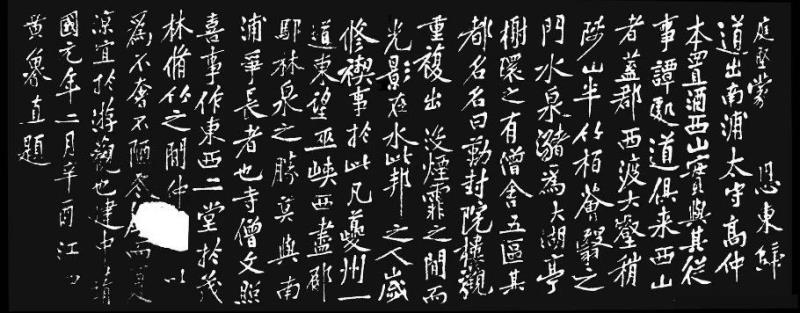 庭堅蒙 恩東歸
道出南浦太守高仲
本置酒西山實與其從
事譚處道俱来西山
者蓋郡西渡大壑稍
陟山半竹柏薈翳之
門水泉瀦為大湖亭
榭環之有僧舍五區其
都名名曰勲封院樓觀
重複出没煙霏之間而
光影在水此邦之人歲
修禊事於此凡夔州一
道東望巫峽西盡郁
鄢林泉之勝莫與南
浦爭長者也寺僧文照
喜事作東西二堂於茂
林脩竹之間仲 以
爲不奢不陋冬 而夏
涼宜於游觀也建中靖
國元年二月辛酉江
黄魯直題